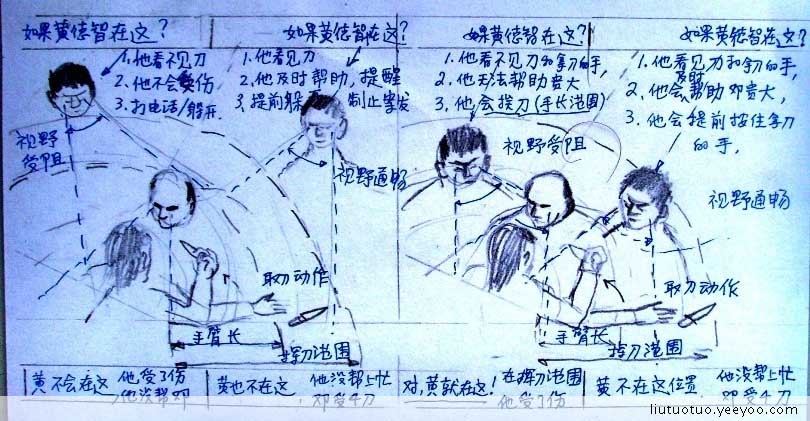 如果黄德智在这?
1.他看不见刀
2.他不会受伤
3.打电话/躲开.
视野
受阻
如果黄德智在这?
1.他看见刀
2.他及时帮助,提醒
3.提前躲 制止案发
视野通畅
取刀动作
手臂长
挥刀范围
如果黄德智在这?
1.他看不见刀和拿刀的手,
2.他无法帮助贵大
3.他会挨刀(手长范围)
视野受阻
如果黄德智在这?
1.他看见刀和拿刀的手,
2.他会及时帮助邓贵大,
3.他会提前按住拿刀
的手,
视野通畅
取刀动作
手臂长
挥刀范围
黄不会在这 他受了伤
他没帮邓
黄也不在这, 他没帮上忙
邓受4刀
对,黄就在这! 在挥刀范围
他受了伤
黄不在这位置, 他没帮上忙
邓受4刀
liutuotuo.yeeyoo.com